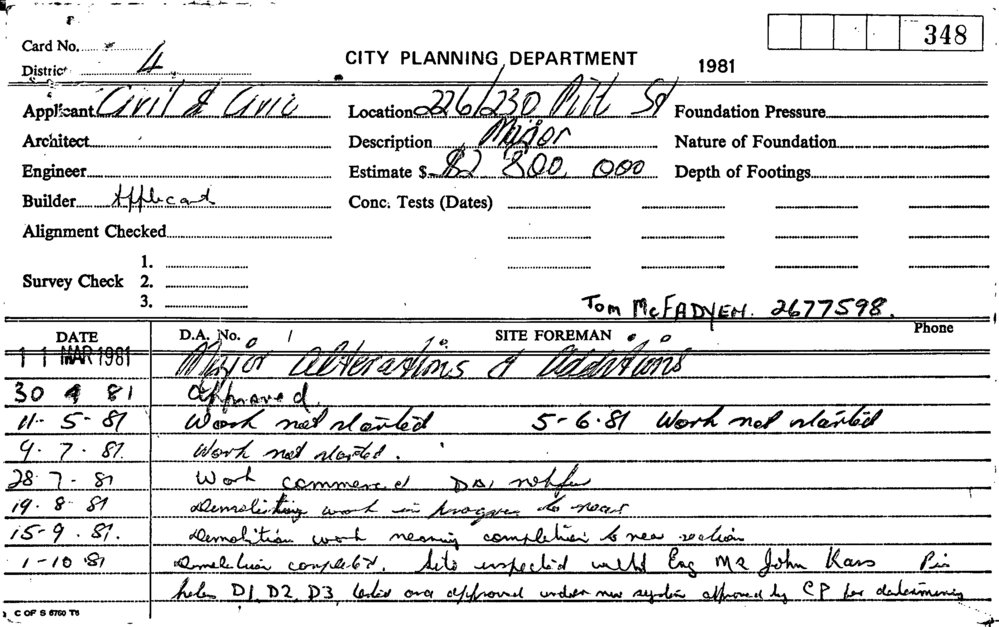 348
Card No.
District 4
CITY PLANNING DEPARTMENT 1981
Applicant Civil & Civic Location 226/230 Pitt St Foundation Pressure
Architect Description Major Nature of Foundation
Engineer Estimate $ $2 800,000 Depth of Footings
Builder Applicant Conc. Tests (Dates)
Alignment Checked
1.
Survey Check 2.
3.
Tom McFADYEN. 2677598.
DATE D.A. No. SITE FOREMAN Phone
11 MAR 1981 Major Alterations & Additions
30 4 81 Approved
11-5-81 Work not started 5-6-81 Work not started
9.7.81. Work not started.
28-7-81 Work commenced
19.8.81 Demolishing work in progress to rear
15-9.81. Demolition work nearing completion to rear section
1-10.81 Demolition completed. Site inspected with Eng Mr John Pier
holes D1, D2, D3, tested and approved under new system approved by CP for determining
C OF S 6760 T6